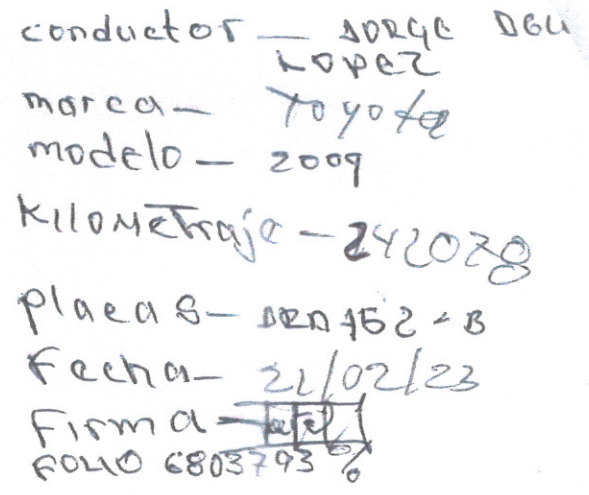 conductor — JORGE
LOPEZ
marca — Toyota
modelo — 2009
Kilometraje — 242028
placas — 152 - B
Fecha — 21/02/23
Firma —
FOLIO 6803793 %